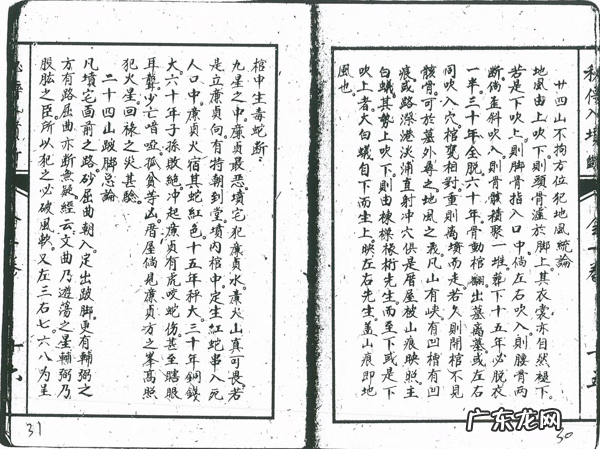 廿四山不拘方位犯地風統論
地風由上吹下則頭骨滙於脚上其衣裳亦自然褪下
若是下吹上則脚骨指入口中倘左右吹入則腰骨兩
断倘歪斜吹則骨骸積聚一堆葬下十五年必脱衣
一半三十年全脱六十年骨動棺翻出墓离墓或左右
同吹入穴棺甕相對重則离墳而走若久則開棺不見
骸骨可於墓外尋之地風之最凡山有峽有凹樓有凹
痕或路深港淡浦直射冲穴俱是厝屋被山痕映照生
白蟻其勢上吹下則由棟樑桷桁先生而至下或是下
吹上者大白蟻自下而生上映左右先生蓋山痕即地
風也
棺中生毒蛇断
九星之中廉貞最恶墳宅犯廉貞水廉火山真可畏若
是立廉貞向有特朝到堂墳内棺中定生紅蛇串入死
人口中廉貞火宿其蛇紅色十五年秤大三十年銅錢
大六十年子孫敗絶冲起廉貞有虎咬蛇伤甚至瞎眼
耳聾少亡喑啞孤貧等凶厝屋倘見廉貞方之峯高照
犯火星回禄之災甚驗
二十四山跛脚总論
凡墳宅面前之路砂屈曲朝入定出跛脚更有輔弼之
方有路屈曲亦断無疑經云文曲乃遊蕩之星輔弼乃
股肱之臣所以犯之必破風軟又左三右七六八为至
31
30
广东龙网